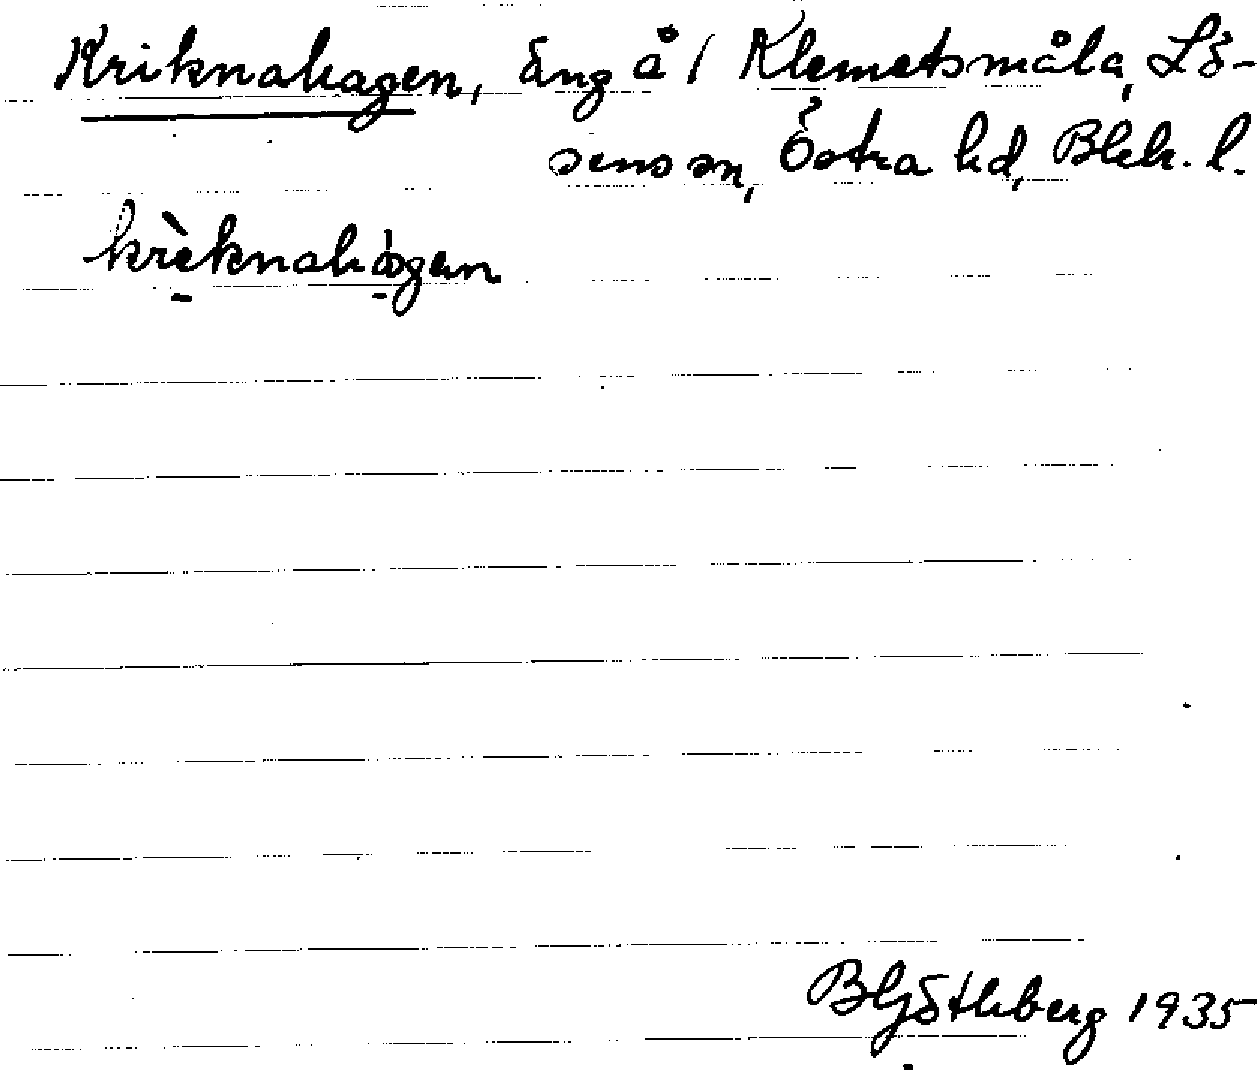 Kriknahagen, äng å 1 Klemetsmåla, Lö-
sens sn, Östra hd, Blek. l.
krìknahàgen
B Götlberg 1935